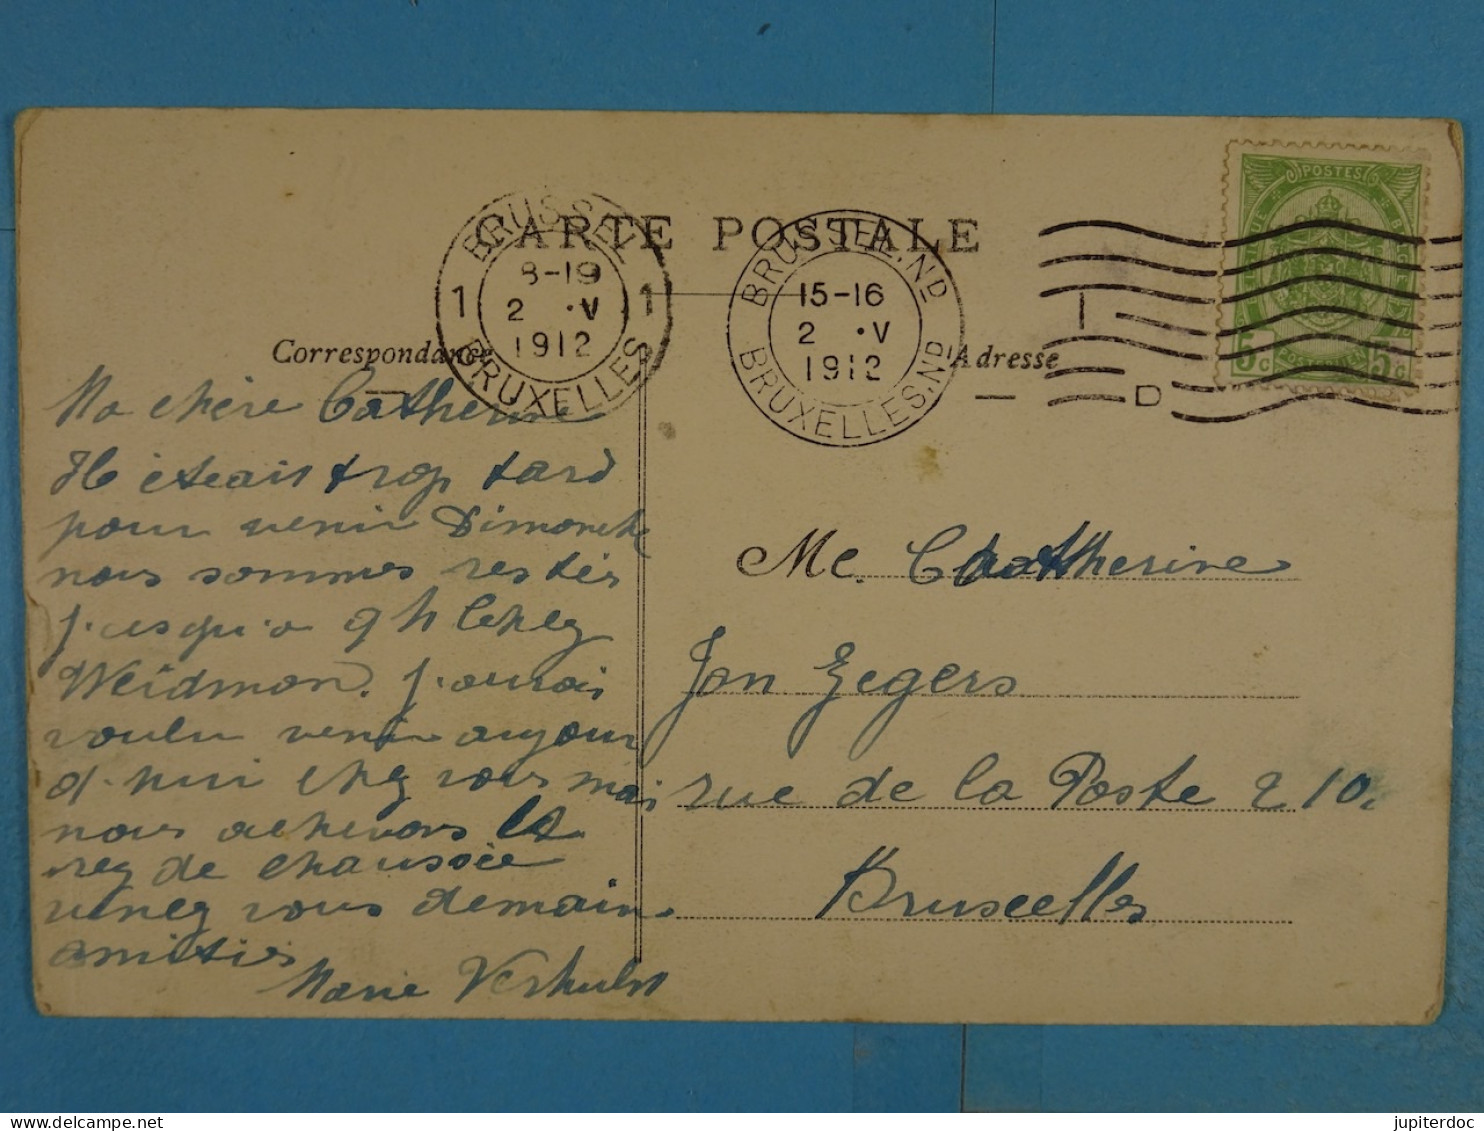 CARTE POSTALE
BRUSSEL
1 8-19 1
2 ·V
1912
BRUXELLES
BRUSSEL.ND
15-16
2 ·V
1912
BRUXELLES.ND
I
D
POSTES
5c POSTERIJEN 5c
Correspondance
Adresse
Ma chère Catherine
Il était trop tard
pour venir Dimanche
nous sommes restés
jusqu'a 9 h chez
Weidmon. j.aurais
voulu venir aujour
d.hui chez vous mais
nous achevons le
rez de chaussée
venez vous demain
amitiés
Marie Verhulst
Me. Catherine
Jan Zegers
rue de la Poste 210.
Bruxelles
jupiterdoc